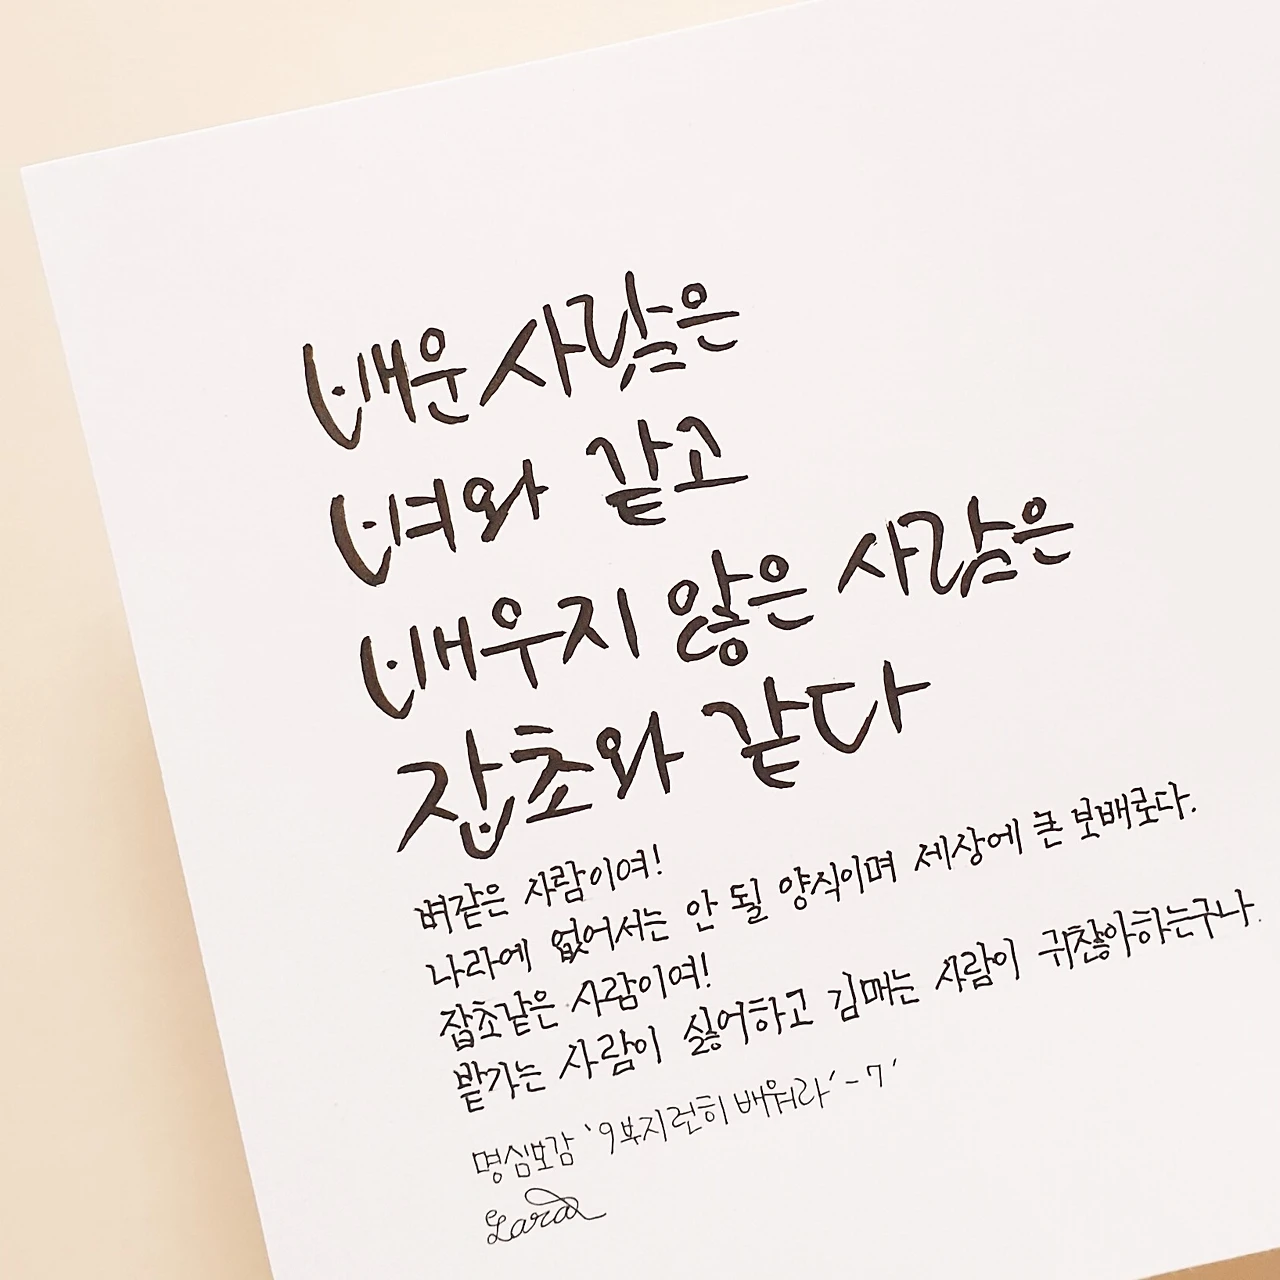 배운 사람은
벼와 같고
배우지 않은 사람은
잡초와 같다
벼같은 사람이여!
나라에 없어서는 안 될 양식이며 세상에 큰 보배로다.
잡초같은 사람이여!
밭가는 사람이 싫어하고 김매는 사람이 귀찮아하는구나.
명심보감 '9부지런히 배워라' - 7'
Lara